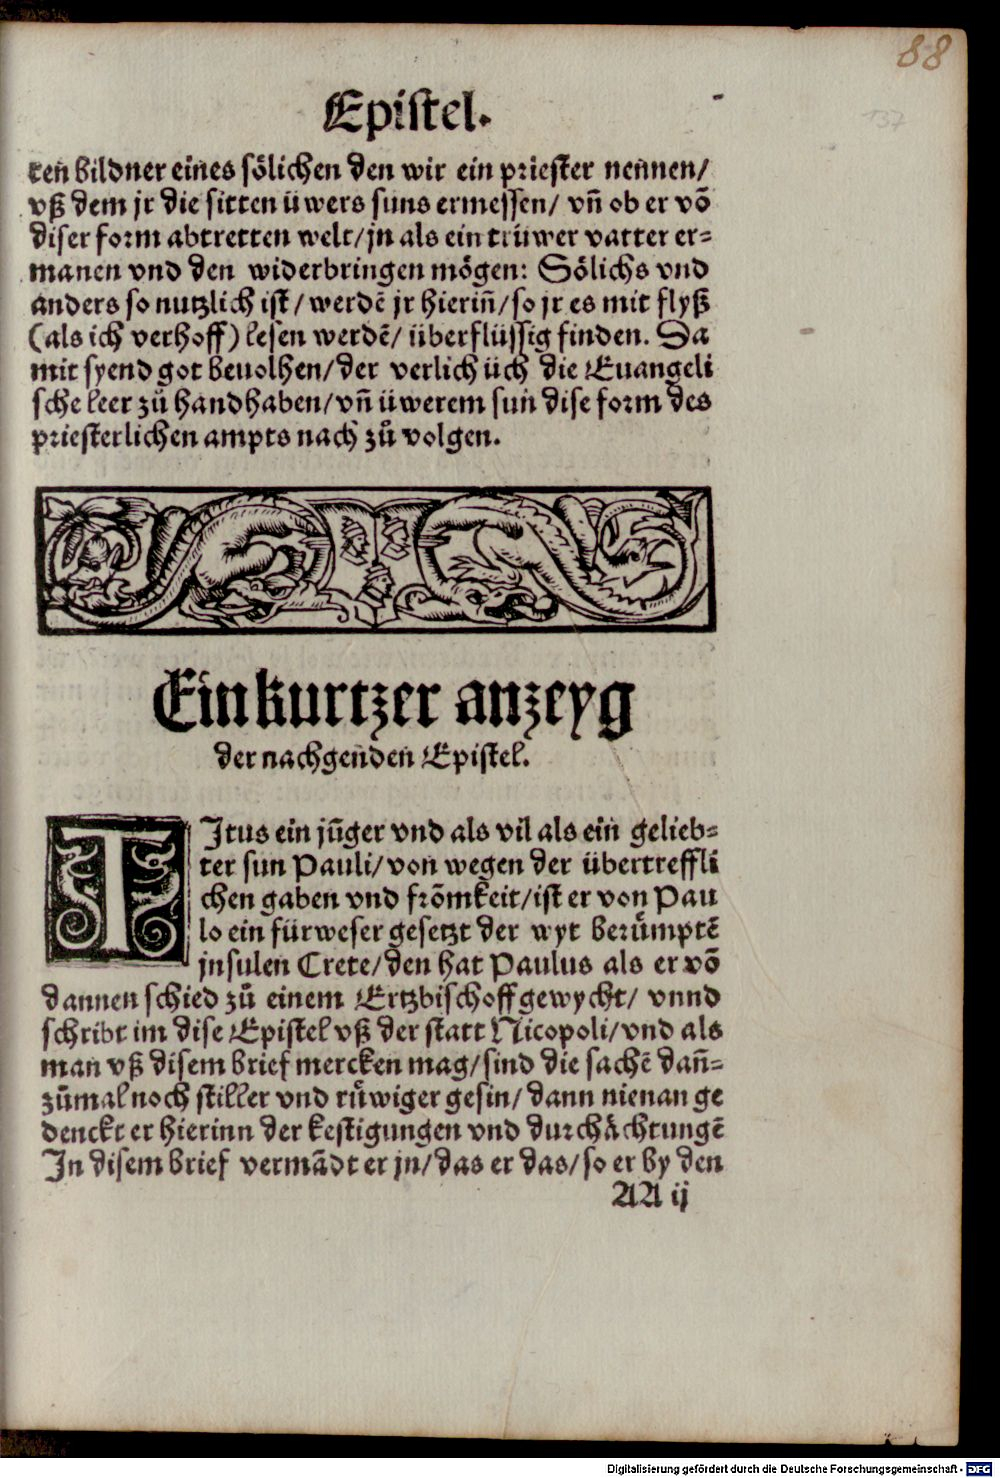 88
137
Epistel.
ten bildner eines sölichen den wir ein priester nennen/
vß dem jr die sitten üwers suns ermessen/ vñ ob er võ
diser form abtretten welt/jn als ein trüwer vatter er=
manen vnd den widerbringen mögen: Sölichs vnd
anders so nutzlich ist/ werdẽ jr hieriñ/so jr es mit flyß
(als ich verhoff) lesen werdẽ/ überflüssig finden. Da
mit syend got beuolhen/der verlich üch die Euangeli
sche leer zů handhaben/vñ üwerem sun dise form des
priesterlichen ampts nach zů volgen.
Ein kurtzer anzeyg
der nachgenden Epistel.
TItus ein jũger vnd als vil als ein gelieb=
ter sun Pauli/von wegen der übertreffli
chen gaben vnd frõmkeit/ist er von Pau
lo ein fürweser gesetzt der wyt berůmptẽ
jnsulen Crete/den hat Paulus als er võ
dannen schied zů einem Ertzbischoff gewycht/ vnnd
schribt im dise Epistel vß der statt Nicopoli/vnd als
man vß disem brief mercken mag/sind die sachẽ dañ=
zůmal noch stiller vnd růwiger gesin/dann nienan ge
denckt er hierinn der kestigungen vnd durchåchtungẽ
In disem brief vermãdt er jn/das er das/so er by den
AA ij
Digitalisierung gefördert durch die Deutsche Forschungsgemeinschaft - DFG